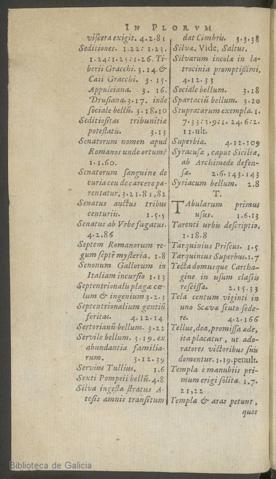 IN FLORVM
viscera exigit. 4.2.81
Seditiones. 1.22: 1.23.
1.24: 1.25: 1.26. Ti-
berii Gracchi. 3.14. &
Caii Gracchi. 3. 15.
Appuleiana. 3. 16.
Drusiana. 3.17. inde
sociale bellũ. 3.18.10
Seditiositas tribunitia
potestatis. 3.13
Senatorum nomen apud
Romanos unde ortum?
1.1.60.
Senatorum sanguine de
curia eundè carcere pa-
rentatur. 3.21.81.82
Senatus auctus tribus
centuriis. 1.5.5
Senatus ab Vrbe fugatus.
4.2.86
Septem Romanorum re-
gum septẽ mysteria. 1.8
Senonum Gallorum in
Italiam incursio 1.13
Septentrionalis plaga cæ-
lum & ingenium 3.2.3
Septentrionalium gentiũ
feritas. 4.12.14
Sertorianũ bellum. 3.22
Servile bellum. 3.19. ex
abundantia familia-
rum. 3.12.39
Servius Tullius. 1.6
Sexti Pompeii bellũ. 4.8
Silva ingesta stratus A-
tesis amnis transitum
dat Cimbris. 3.3.38
Silva. Vide, Saltus.
Silvarum incola in la-
trocinia promptissimi.
4.12.33
Sociale bellum. 3.18
Spartacũ bellum. 3.20
Stupratarum exempla. 1.
7.33: 1.9: 1.24.6: 2.
11. ult.
Superbia. 4.12.109
Syracusa, caput Siciliæ,
ab Archimede defen-
sa. 2.6.143.143
Syriacum bellum. 2.8
T.
TAbularum primus
usus. 1.6.13
Tarenti urbis descriptio.
1.18.8
Tarquinius Priscus. 1.5
Tarquinius Superbus. 1.7
Tecta domusque Cartha-
gine in usum classis
rescissa. 2.15.33
Tela centum viginti in
uno Scæva scuto sede-
re. 4.2.166
Tellus, dea, promissa æde,
ita placatur, ut ado-
ratores victoribus suis
domentur. 1.19. penult.
Templa è manubiis pri-
mum erigi solita. 1.7.
21,22
Templa & aras petunt,
quos
Biblioteca de Galicia